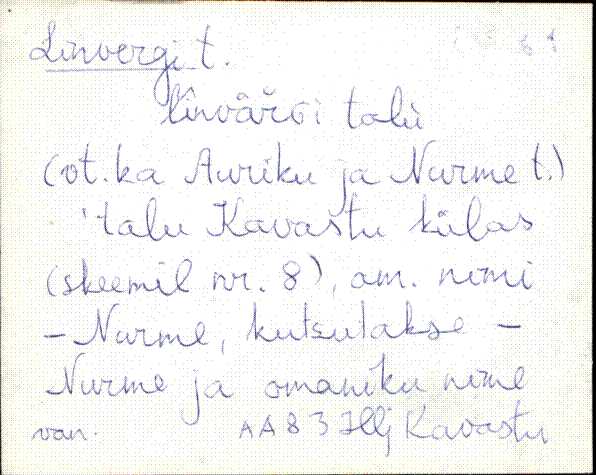 Linvergi t.
talu
(vt. ka Auriku ja Nurme t.)
talu Kavastu külas
(skeemil nr. 8), am. nimi
– Nurme, kutsutakse –
Nurme ja omaniku nime
van. AA 83 Hlj Kavastu